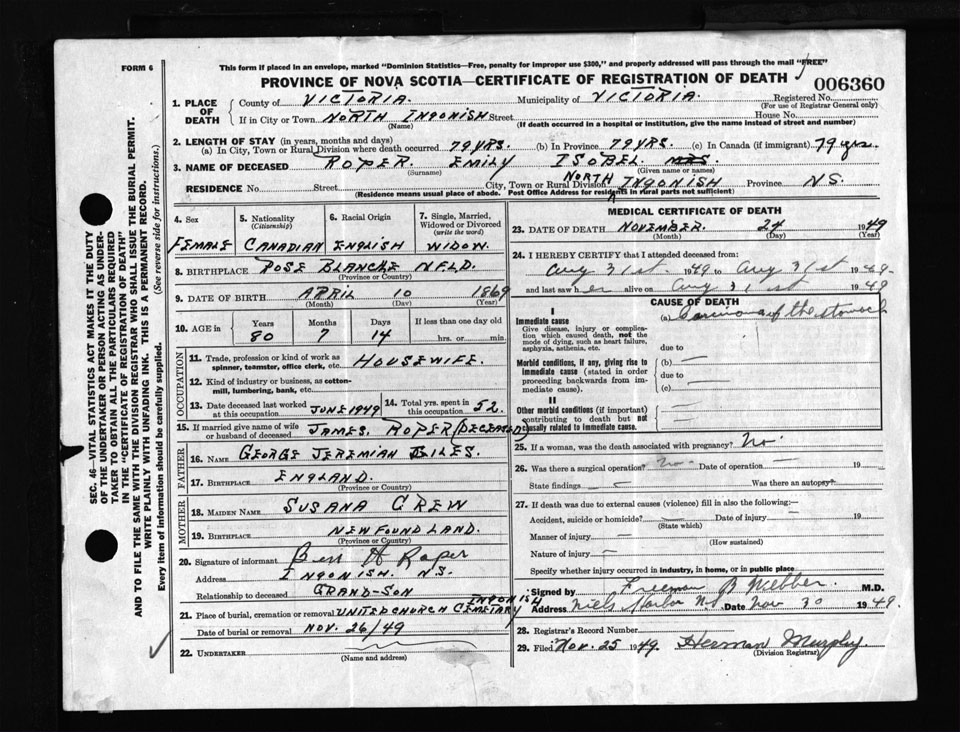 FORM 6
This form if placed in an envelope, marked "Dominion Statistics—Free, penalty for improper use $300," and properly addressed will pass through the mail "FREE"
PROVINCE OF NOVA SCOTIA—CERTIFICATE OF REGISTRATION OF DEATH
006360
1. PLACE OF DEATH County of VICTORIA. Municipality of VICTORIA. Registered No.
(For use of Registrar General only)
If in City or Town NORTH INGONISH Street House No.
(Name) (If death occurred in a hospital or institution, give the name instead of street and number)
2. LENGTH OF STAY (in years, months and days)
(a) In City, Town or Rural Division where death occurred 79 YRS. (b) In Province 79 YRS. (c) In Canada (if immigrant) 79 yrs.
3. NAME OF DECEASED ROPER. EMILY ISOBEL MRS.
(Surname) (Given name or names)
RESIDENCE No. Street City, Town or Rural Division NORTH INGONISH Province N.S.
(Residence means usual place of abode. Post Office Address for residents in rural parts not sufficient)
4. Sex
FEMALE
5. Nationality (Citizenship)
CANADIAN
6. Racial Origin
ENGLISH
7. Single, Married, Widowed or Divorced (write the word)
WIDOW.
8. BIRTHPLACE ROSE BLANCHE NFLD.
(Province or Country)
9. DATE OF BIRTH APRIL 10 1869
(Month) (Day) (Year)
10. AGE in Years Months Days If less than one day old
80 7 14 hrs. or min.
OCCUPATION
11. Trade, profession or kind of work as spinner, teamster, office clerk, etc. HOUSEWIFE.
12. Kind of industry or business, as cotton-mill, lumbering, bank, etc.
13. Date deceased last worked at this occupation JUNE 1949
14. Total yrs. spent in this occupation 52.
15. If married give name of wife or husband of deceased JAMES, ROPER (DECEASED)
FATHER
16. Name GEORGE JEREMIAN BILES.
17. Birthplace ENGLAND.
(Province or Country)
MOTHER
18. Maiden Name SUSANA CREW
19. Birthplace NEWFOUNDLAND.
(Province or Country)
20. Signature of informant Ben H Roper
Address INGONISH. N.S.
Relationship to deceased GRAND-SON
21. Place of burial, cremation or removal UNITED CHURCH CEMETARY INGONISH
Date of burial or removal NOV. 26/49
22. UNDERTAKER
(Name and address)
MEDICAL CERTIFICATE OF DEATH
23. DATE OF DEATH NOVEMBER. 24 1949
(Month) (Day) (Year)
24. I HEREBY CERTIFY that I attended deceased from:
Aug 31st 1949 to Aug 31st 1949
and last saw her alive on Aug 31st 1949
CAUSE OF DEATH
I
Immediate cause (a) Carcinoma of the stomach
Give disease, injury or complication which caused death, not the mode of dying, such as heart failure, asphyxia, asthenia, etc.
due to
Morbid conditions, if any, giving rise to immediate cause (stated in order proceeding backwards from immediate cause).
(b) —
due to
(c) —
II
Other morbid conditions (if important) contributing to death but not causally related to immediate cause.
25. If a woman, was the death associated with pregnancy? No.
26. Was there a surgical operation? No. Date of operation — 19
State findings — Was there an autopsy?
27. If death was due to external causes (violence) fill in also the following:—
Accident, suicide or homicide? — Date of injury — 19
(State which)
Manner of injury —
(How sustained)
Nature of injury —
Specify whether injury occurred in industry, in home, or in public place
Signed by Freeman B Webber. M.D.
Address Niels Harbor N.S. Date Nov 30 1949.
28. Registrar's Record Number
29. Filed Nov. 25 1949. Herman Murphy
(Division Registrar)
SEC. 46—VITAL STATISTICS ACT MAKES IT THE DUTY
OF THE UNDERTAKER OR PERSON ACTING AS UNDER-
TAKER TO OBTAIN ALL THE PARTICULARS REQUIRED
IN THE "CERTIFICATE OF REGISTRATION OF DEATH"
AND TO FILE THE SAME WITH THE DIVISION REGISTRAR WHO SHALL ISSUE THE BURIAL PERMIT.
WRITE PLAINLY WITH UNFADING INK. THIS IS A PERMANENT RECORD.
Every item of information should be carefully supplied. (See reverse side for instructions.)